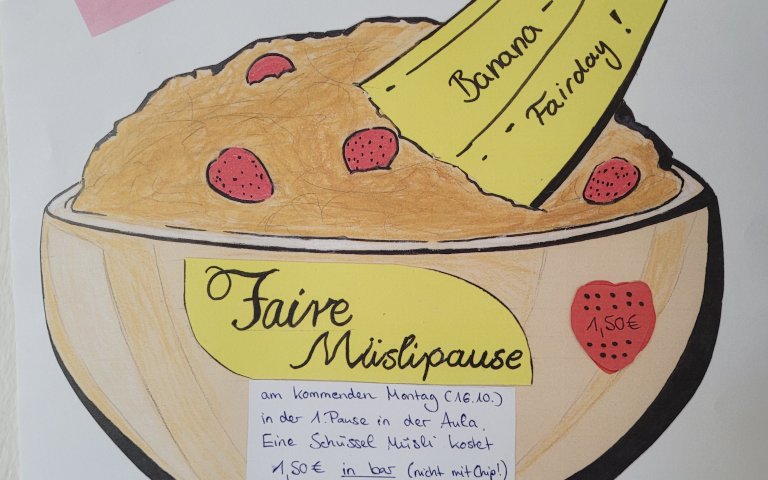 Banana -
Fairday!
Faire
Müslipause
1,50€
am kommenden Montag (16.10.)
in der 1. Pause in der Aula.
Eine Schüssel Müsli kostet
1,50€ in bar (nicht mit Chip!)